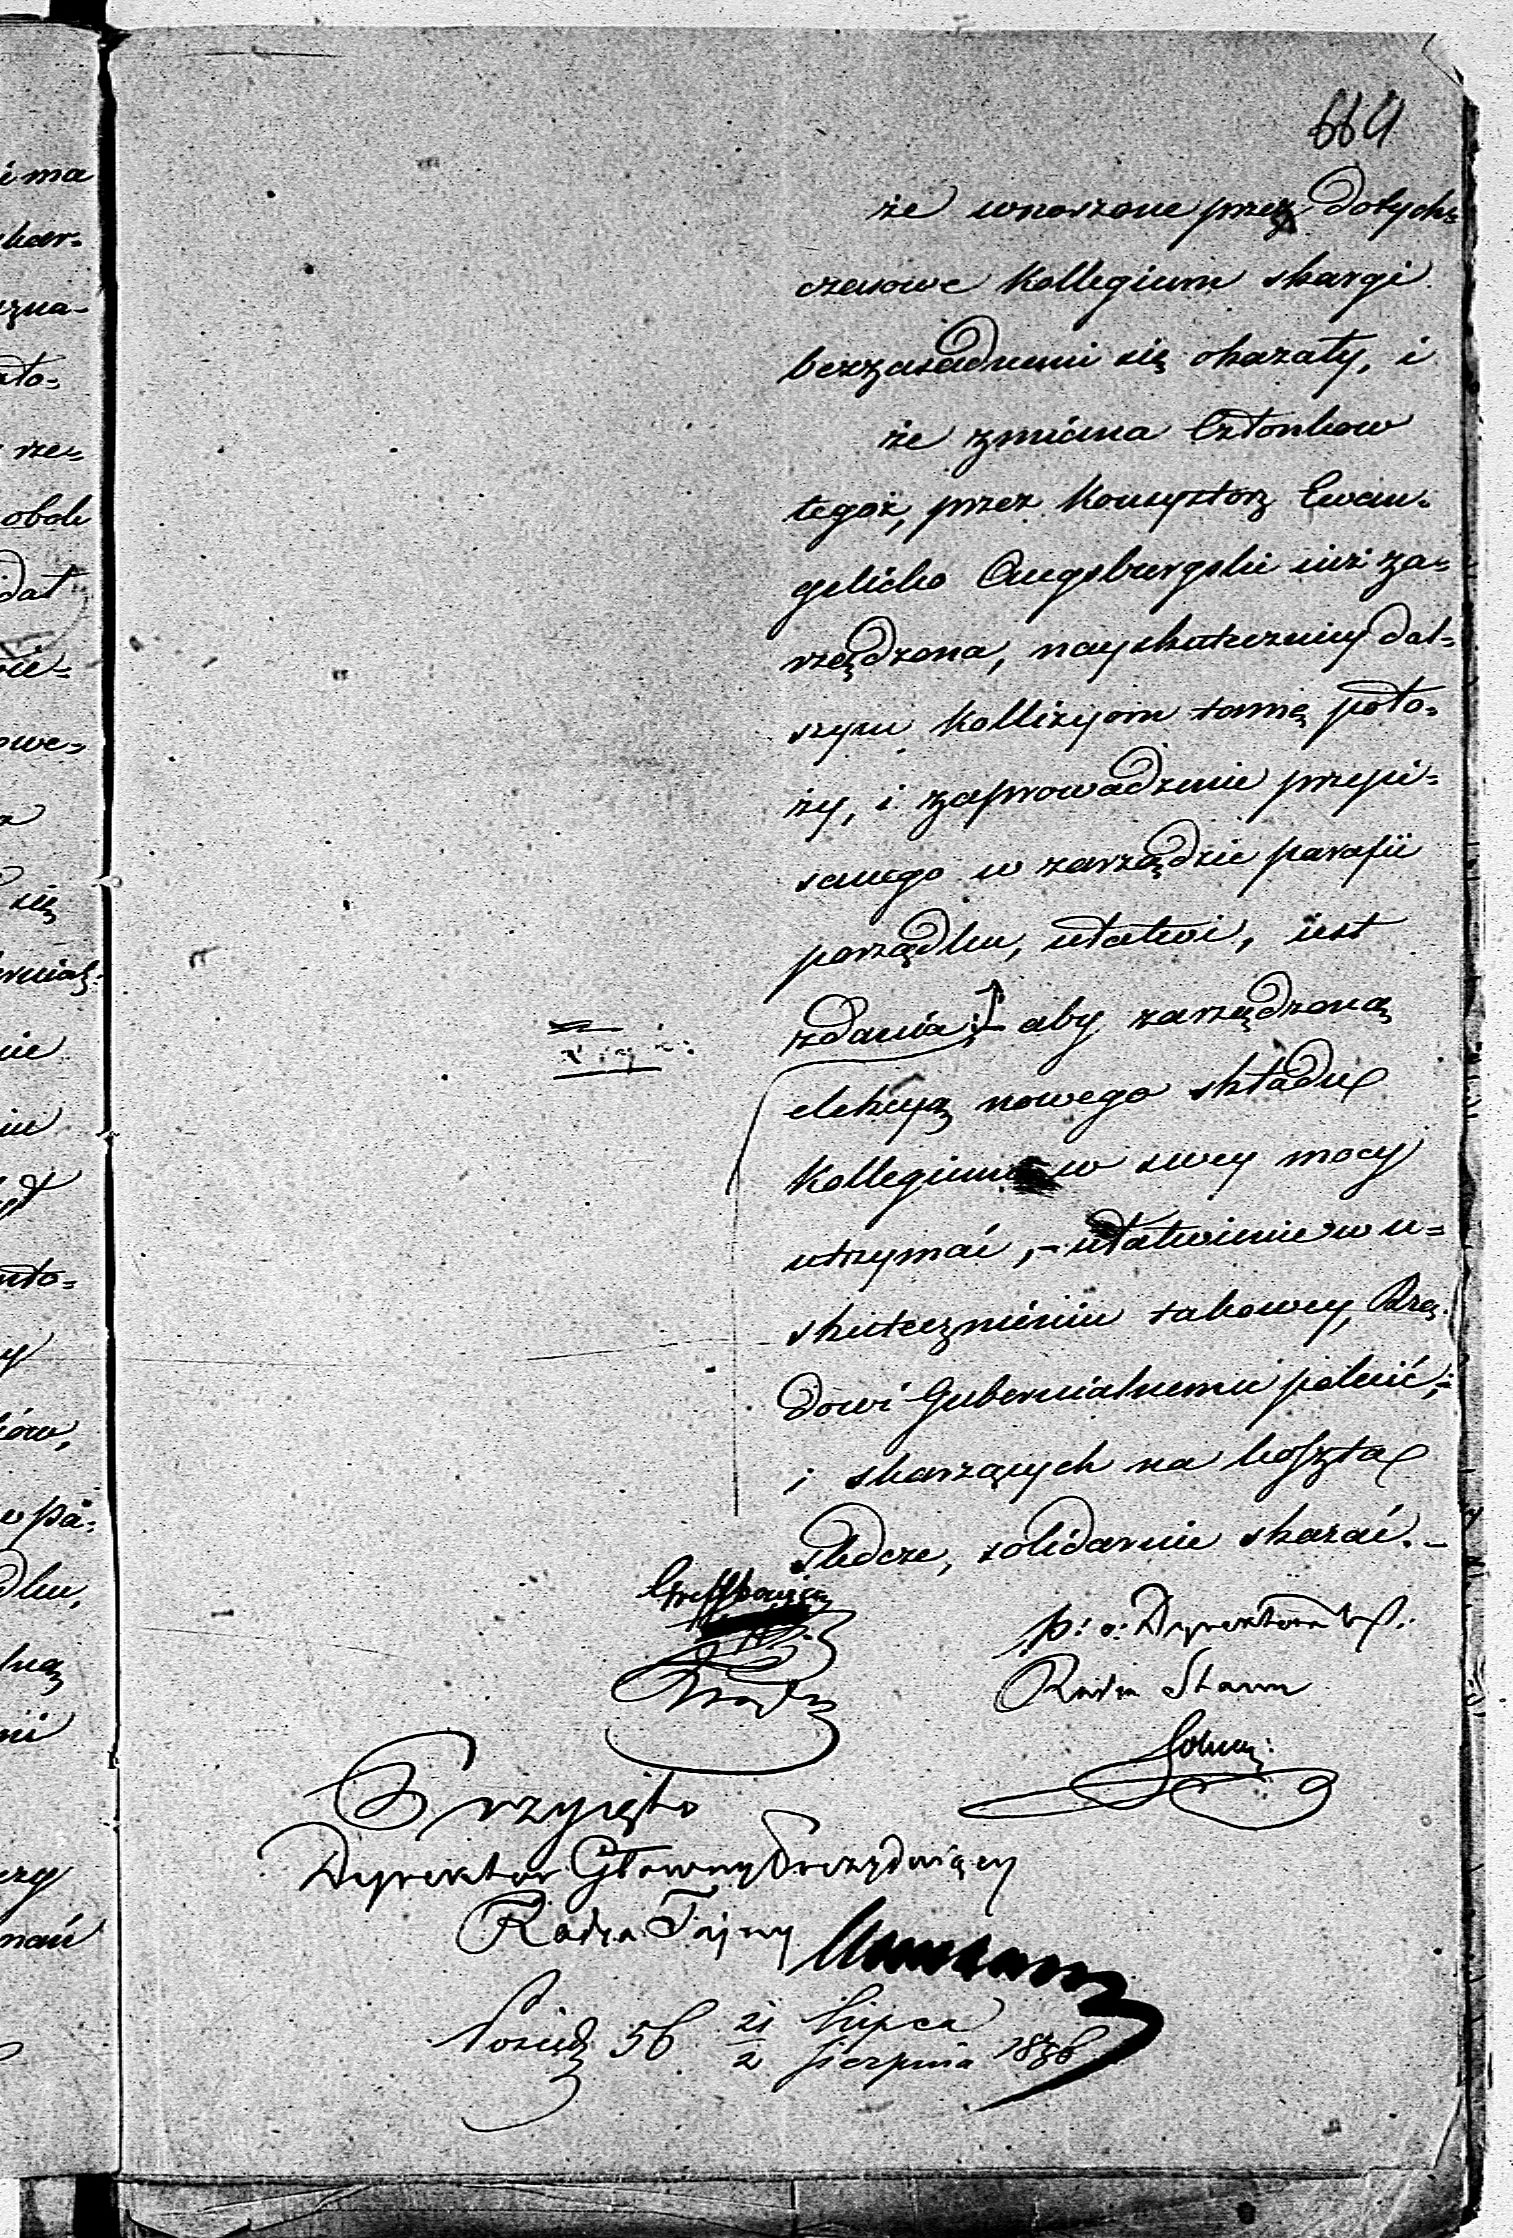 664
że wnoszone przez dotych=
czasowe Kollegium skargi
bezzasadnemi się okazały, i
że zmiana Członkow
tegoż, przez Konsystorz Ewan=
gelicko Augsburgski iuż za=
rządzona, nayskuteczniey dal=
szym kollizyom tamę poło=
ży, i zaprowadzenie przepi=
sanego w zarządzie parafii
porządku, ułatwi, iest
zdania: aby zarządzoną
elekcyą nowego składu
Kollegium w swey mocy
utrzymać, – ułatwienie w u=
skutecznieniu takowey, Rzą=
dowi Gubernialnemu polecić,
i skarżących na koszta
śledcze, solidarnie skazać. –
p: o: Dyrektora
Radca Stanu
Przyięto
Dyrektor Główny Prezyduiący
Radca Tajny
Posiedz 56 21 Lipca
2 Sierpnia 1836
ima
kar=
zna=
ało=
rze=
obok
dał
nie=
owe=
się
nie
ało=
y
ków,
w pa=
dku,